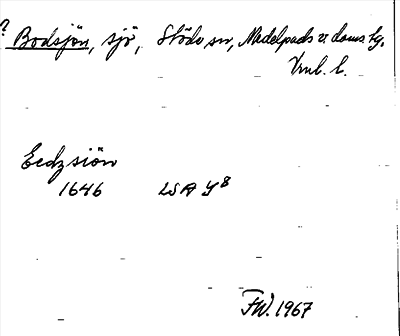 ? Bodsjön, sjö, Stöde sn, Medelpads v. doms. tg,
Vnl. l.
Eedzsiön
1646 LSA Y8
FW. 1967